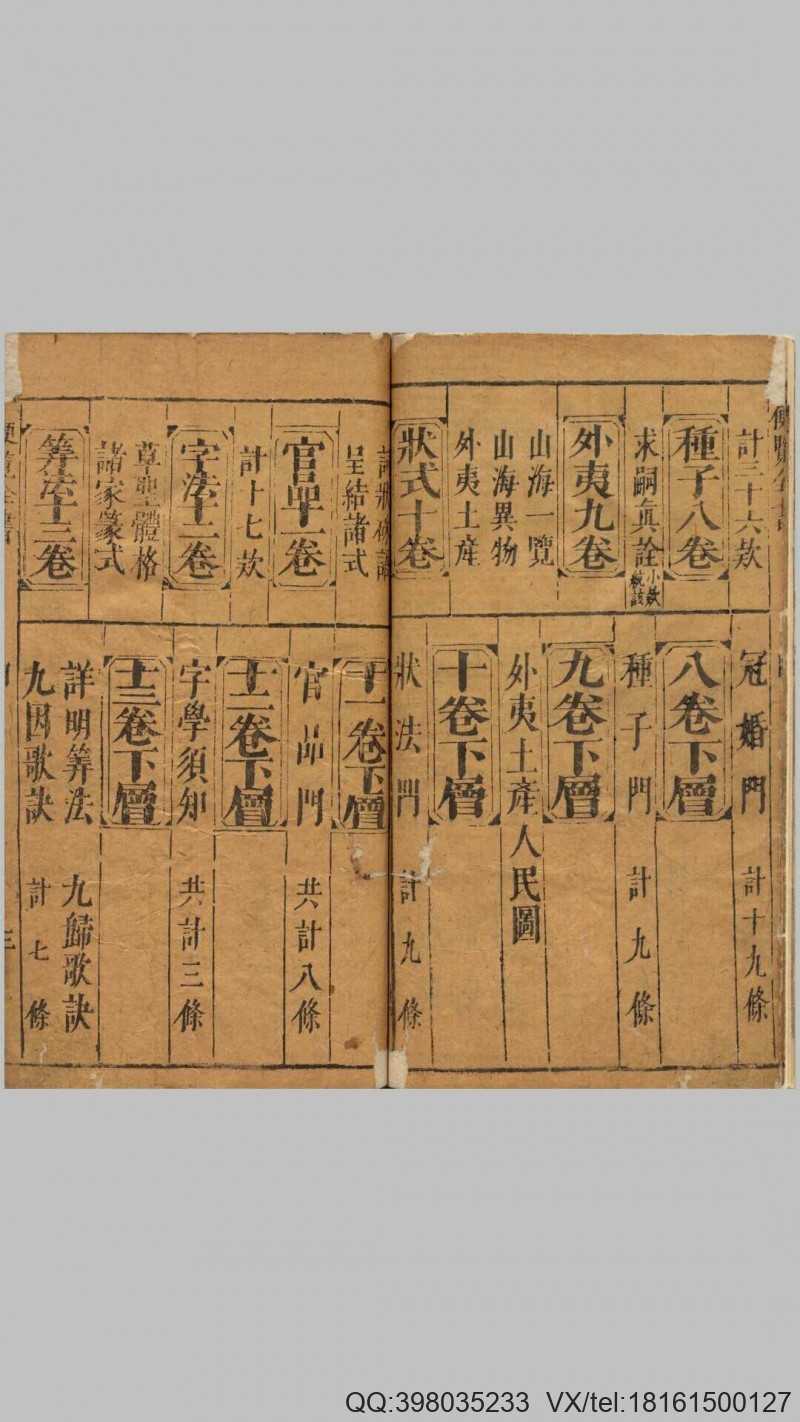 計三十六款
種子八卷
求嗣眞詮
外夷九卷
山海一覽
山海異物
外夷土産
狀式十卷
冠婚門 計十九條
八卷下層
種子門 計九條
九卷下層
外夷土産人民圖
十卷下層
狀法門 計九條
呈結諸式
官品十一卷
計十七款
字法十二卷
草聖體格
諸家篆式
筭法十三卷
十一卷下層
官品門 共計八條
十二卷下層
字學須知 共計三條
十三卷下層
詳明筭法 九歸歌訣
九因歌訣 計七條
QQ:398035233 VX/tel:18161500127